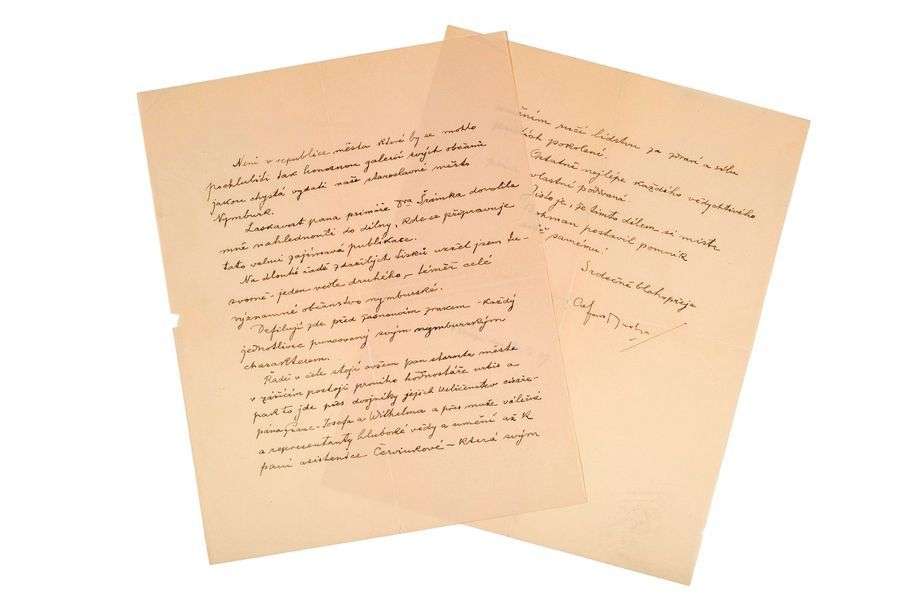 Není v republice města které by se mohlo
pochlubiti tak honosnou galerií svých občanů
jakou chystá vydati naše staroslavné město
Nymburk.
Laskavost pana primáře Dra Šrámka dovolila
mně nahlédnouti do dílny, kde se připravuje
tato velmi zajímavá publikace.
Na dlouhé řadě zdařilých tisků uzřel jsem
svorně - jeden vedle druhého, - téměř celé
významné občanstvo nymburské.
Defilují zde před žasnoucím zrakem - každý
jednotlivec puncovaný svým nymburským
charakterem.
Řadě v čele stojí ovšem pan starosta města
v zářícím postoji prvního hodnostáře urbis a
pak to jde přes dvojníky jejich Veličenstev císaře-
pána Franc-Josefa a Wilhelma a přes muže válečné
a representanty hluboké vědy a umění až k
paní asistence Červinkové - která svým
růži lidstvu za zdraví a sílu
pokolení.
Ostatně nejlépe každého vědychtivého
vlastní podívaná.
Jisto je, že tímto dílem si mistr
postavil pomník
samému!
Srdečně blahopřeje